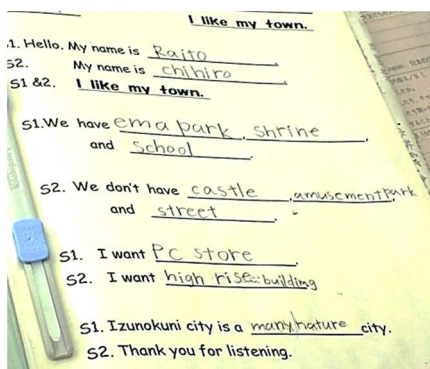 I like my town.
S1. Hello. My name is Raito.
S2. My name is chihiro.
S1 &2. I like my town.
S1. We have ema park, shrine,
and school.
S2. We don't have castle, amusement park
and street.
S1. I want PC store.
S2. I want high rise building
S1. Izunokuni city is a many nature city.
S2. Thank you for listening.